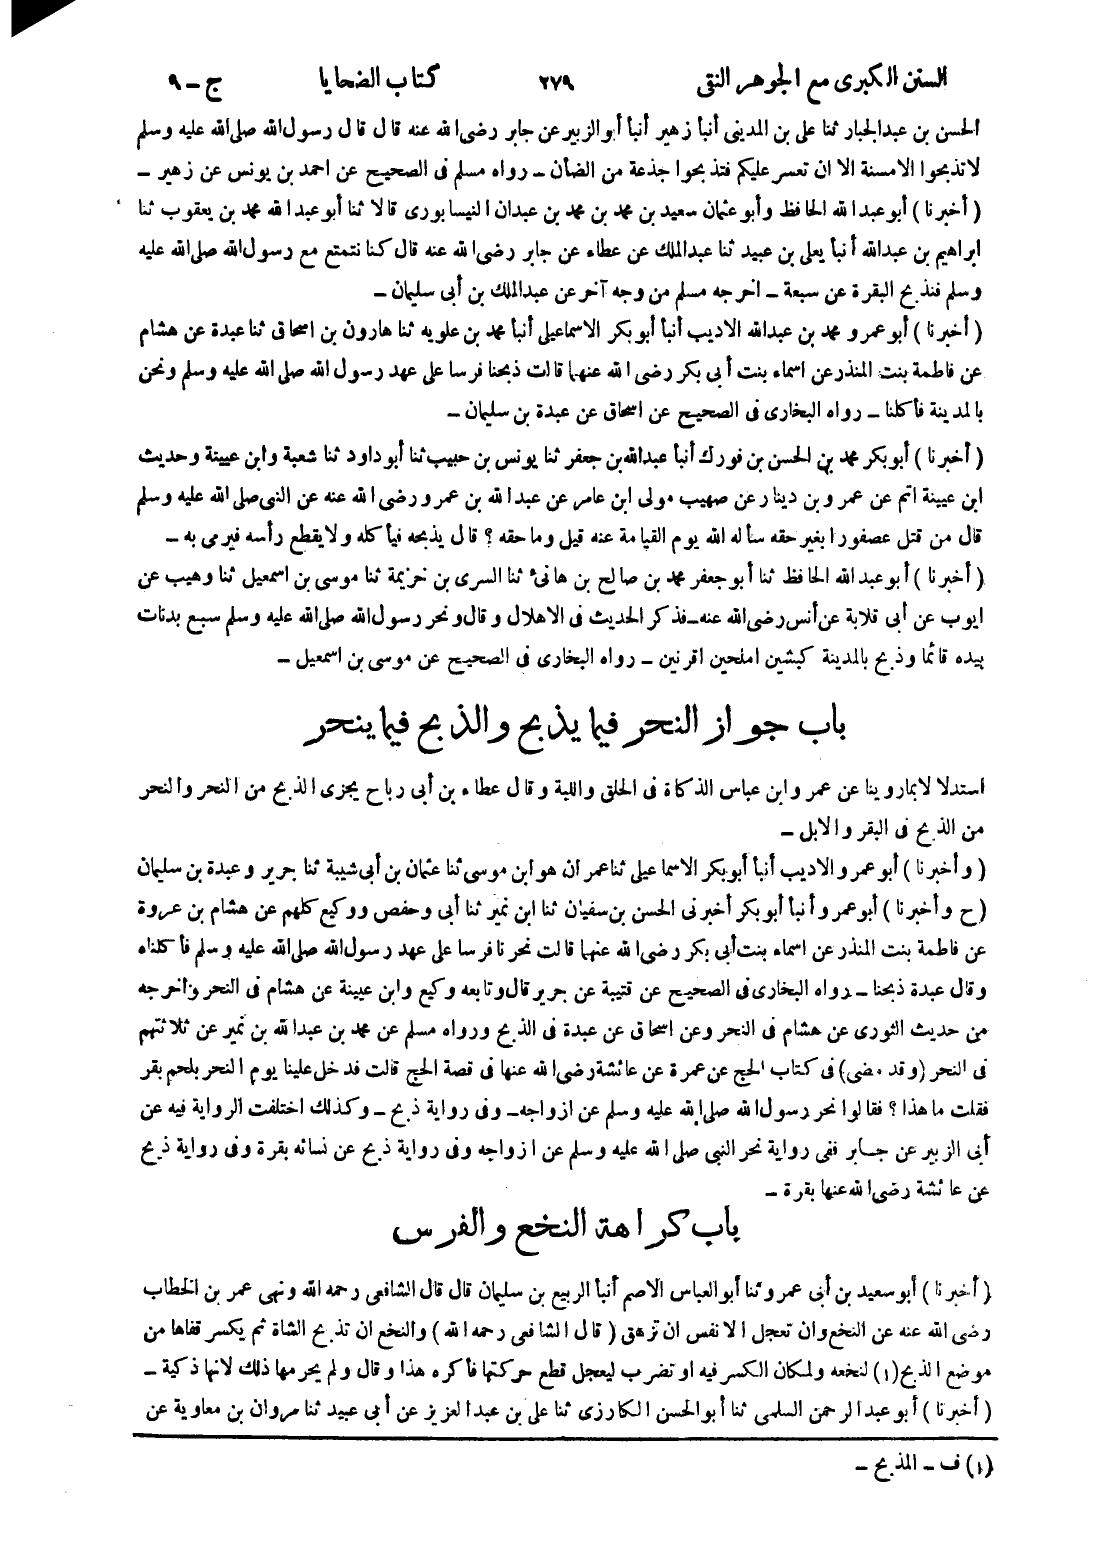 السنن الكبرى مع الجوهر النقى ٢٧٩ كتاب الضحايا ج - ٩
الحسن بن عبدالجبار ثنا على بن المدينى أنبأ زهير أنبأ أبوالزبير عن جابر رضى الله عنه قال قال رسول الله صلى الله عليه وسلم
لا تذبحوا الامسنة الا ان تعسر عليكم فتذبحوا جذعة من الضأن - رواه مسلم فى الصحيح عن احمد بن يونس عن زهير -
( أخبرنا ) أبوعبدالله الحافظ وأبو عثمان سعيد بن محمد بن محمد بن عبدان النيسابورى قالا ثنا أبوعبدالله محمد بن يعقوب ثنا
ابراهيم بن عبدالله أنبأ يعلى بن عبيد ثنا عبدالملك عن عطاء عن جابر رضى الله عنه قال كنا نتمتع مع رسول الله صلى الله عليه
وسلم فنذبح البقرة عن سبعة - اخرجه مسلم من وجه آخر عن عبدالملك بن أبى سليمان -
( أخبرنا ) أبوعمرو محمد بن عبدالله الاديب أنبأ أبوبكر الاسماعيلى أنبأ محمد بن علويه ثنا هارون بن اسحاق ثنا عبدة عن هشام
عن فاطمة بنت المنذر عن اسماء بنت أبى بكر رضى الله عنهما قالت ذبحنا فرسا على عهد رسول الله صلى الله عليه وسلم ونحن
بالمدينة فأكلنا - رواه البخارى فى الصحيح عن اسحاق عن عبدة بن سليمان -
( أخبرنا ) أبوبكر محمد بن الحسن بن فورك أنبأ عبدالله بن جعفر ثنا يونس بن حبيب ثنا أبوداود ثنا شعبة وابن عيينة وحديث
ابن عيينة اتم عن عمرو بن دينار عن صهيب مولى ابن عامر عن عبدالله بن عمرو رضى الله عنه عن النبى صلى الله عليه وسلم
قال من قتل عصفورا بغير حقه سأله الله يوم القيامة عنه قيل وما حقه ؟ قال يذبحه فيأكله ولا يقطع رأسه فيرمى به -
( أخبرنا ) أبوعبدالله الحافظ ثنا أبوجعفر محمد بن صالح بن هانئ ثنا السرى بن خزيمة ثنا موسى بن اسمعيل ثنا وهيب عن
ايوب عن أبى قلابة عن أنس رضى الله عنه - فذكر الحديث فى الاهلال وقال ونحر رسول الله صلى الله عليه وسلم سبع بدنات
بيده قائما وذبح بالمدينة كبشين املحين اقرنين - رواه البخارى فى الصحيح عن موسى بن اسمعيل -
باب جواز النحر فيما يذبح والذبح فيما ينحر
استدلالا بما روينا عن عمر وابن عباس الذكاة فى الحلق واللبة وقال عطاء بن أبى رباح يجزى الذبح من النحر والنحر
من الذبح فى البقر والابل -
( وأخبرنا ) أبوعمرو الاديب أنبأ أبوبكر الاسماعيلى ثنا عمران هو ابن موسى ثنا عثمان بن أبى شيبة ثنا جرير وعبدة بن سليمان
( ح وأخبرنا ) أبوعمرو أنبأ أبوبكر أخبرنى الحسن بن سفيان ثنا ابن نمير ثنا أبى وحفص ووكيع كلهم عن هشام بن عروة
عن فاطمة بنت المنذر عن اسماء بنت أبى بكر رضى الله عنهما قالت نحرنا فرسا على عهد رسول الله صلى الله عليه وسلم فأكلناه
وقال عبدة ذبحنا - رواه البخارى فى الصحيح عن قتيبة عن جرير قال وتابعه وكيع وابن عيينة عن هشام فى النحر واخرجه
من حديث الثورى عن هشام فى النحر وعن اسحاق عن عبدة فى الذبح ورواه مسلم عن محمد بن عبدالله بن نمير عن ثلاثتهم
فى النحر (وقد مضى) فى كتاب الحج عن عمرة عن عائشة رضى الله عنها فى قصة الحج قالت فدخل علينا يوم النحر بلحم بقر
فقلت ما هذا ؟ فقالوا نحر رسول الله صلى الله عليه وسلم عن ازواجه - وفى رواية ذبح - وكذلك اختلفت الرواية فيه عن
أبى الزبير عن جابر ففى رواية نحر النبى صلى الله عليه وسلم عن ازواجه وفى رواية ذبح عن نسائه بقرة وفى رواية ذبح
عن عائشة رضى الله عنها بقرة -
باب كراهة النخع والفرس
( أخبرنا ) أبوسعيد بن أبى عمرو ثنا أبوالعباس الاصم أنبأ الربيع بن سليمان قال قال الشافعى رحمه الله ونهى عمر بن الخطاب
رضى الله عنه عن النخع وان تعجل الانفس ان تزهق ( قال الشافعى رحمه الله ) والنخع ان تذبح الشاة ثم يكسر قفاها من
موضع الذبح(١) لنخعه ولمكان الكسر فيه او تضرب ليعجل قطع حركتها فأكره هذا وقال ولم يحرمها ذلك لانها ذكية -
( أخبرنا ) أبوعبدالرحمن السلمى ثنا أبوالحسن الكارزى ثنا على بن عبدالعزيز عن أبى عبيد ثنا مروان بن معاوية عن
(١) ف - المذبح -